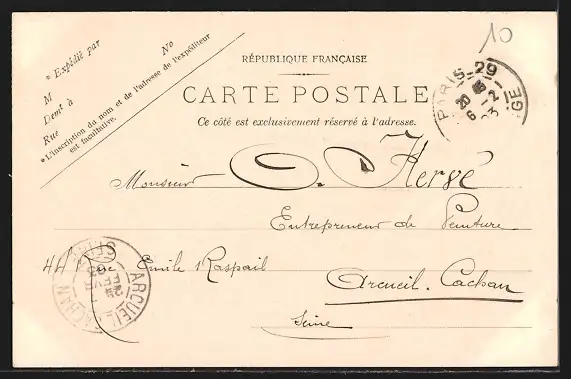 10
* Expédié par
No
M
Demt à
Rue
* L'inscription du nom et de l'adresse de l'expéditeur
est facultative.
RÉPUBLIQUE FRANÇAISE
CARTE POSTALE
Ce côté est exclusivement réservé à l'adresse.
PARIS 29
Monsieur O. Hervé
Entrepreneur de Peinture
44 rue Emile Raspail
Arcueil. Cachan
Seine
ARCUEIL CACHAN
SEINE